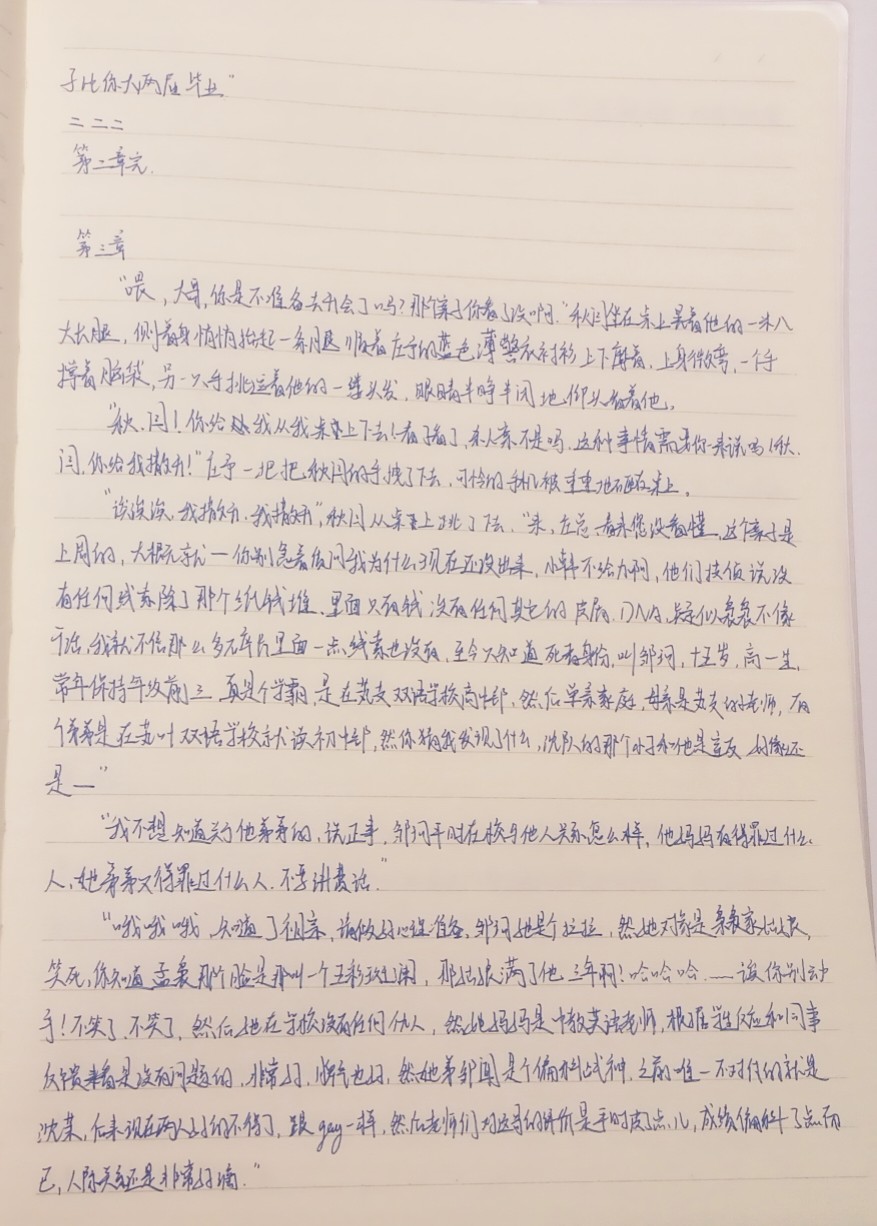 子比你大两届毕业"
二 二 二
第二章完.
第三章
"喂,大哥,你是不准备去开会了吗?那个案子你看了没啊."秋闫坐在桌上晃着他的一米八
大长腿,侧着身悄悄抬起一条腿顺着左予的蓝色薄警衣衬衫上下蹭着.上身微弯,一个手
撑着脑袋,另一只手挑逗着他的一撮头发,眼睛半睁半闭地仰头看着他。
"秋.闫!你给我从我桌上下去!看了看了,杀人案不是吗.这种事情需要你来说吗!秋.
闫.你给我撒开!"左予一把把秋闫的手拽了下去,可怜的手机被重重地砸在桌上。
"诶诶诶.我撒开.我撒开",秋闫从桌上跳了下去."来,左总.看来您没看懂.这个案子是
上周的,大概元就一你别急着问我为什么现在还没出来,小韩不给力啊,他们技侦说没
有任何线索除了那个纸钱堆.里面只有钱没有任何其它的皮屑.DNA.疑似
话,我就不信那么多 里面一点线索也没有.至今只知道死者身份,叫邹珂,十五岁,高一生,
常年保持年级前三.真是个学霸,是在 双语学校高中部,然后单亲家庭,母亲是 的老师,有
个弟弟是在 双语学校就读初中部,然你猜我发现了什么,沈队的那个小子和他是 好像还
是一"
"我不想知道关于他弟弟的,说正事,邹珂平时在校与他人关系怎么样,他妈妈有得罪过什么
人,她弟弟又得罪过什么人.不要讲废话."
"哦哦哦,知道了祖宗,请做好心理准备,邹珂她是个拉拉,然她对象是 家
笑死,你知道孟 那个脸是那叫一个五彩斑斓, 瞒了他三年啊!哈哈哈.一诶你别动
手!不笑了.不笑了,然后她在学校没有任何仇人,然她妈妈是中教英语老师,根据学生反应和同事
反馈来看是没有问题的.非常好,脾气也好,然她弟邹 是个偏科战神.之前唯一不对付的就是
沈 ,后来现在两人好的不得了,跟gay一样,然后老师们对 的评价是平时皮了点儿,成绩偏科了点而
已,人际关系还是非常好滴."